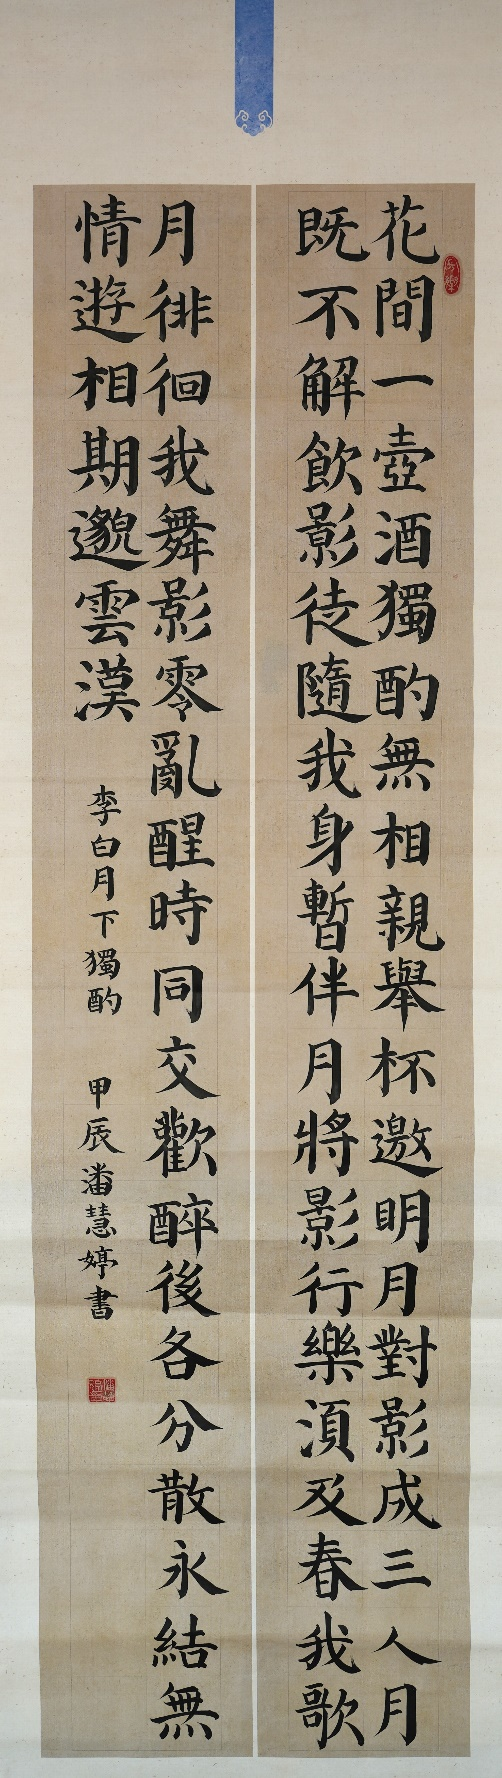 花間一壺酒獨酌無相親舉杯邀明月對影成三人月
既不解飲影徒隨我身暫伴月將影行樂須及春我歌
月徘徊我舞影零亂醒時同交歡醉後各分散永結無
情遊相期邈雲漢
李白月下獨酌
甲辰潘慧婷書